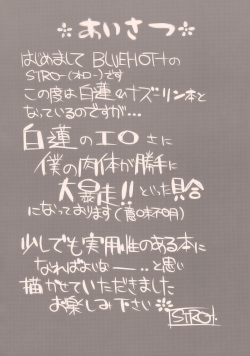 ✲ あいさつ ✲
はじめまして BLUEHOTHの
SIRO-(オロー)です
この度は白蓮&ナズーリン本と
なっているのですが…
白蓮のエロさに
僕の肉体が勝手に
大暴走!!といった具合
になっております(意味不明)
少しでも実用性のある本に
なればよいなー‥と思い
描かせていただきました
お楽しみ下さい✲
SIRO